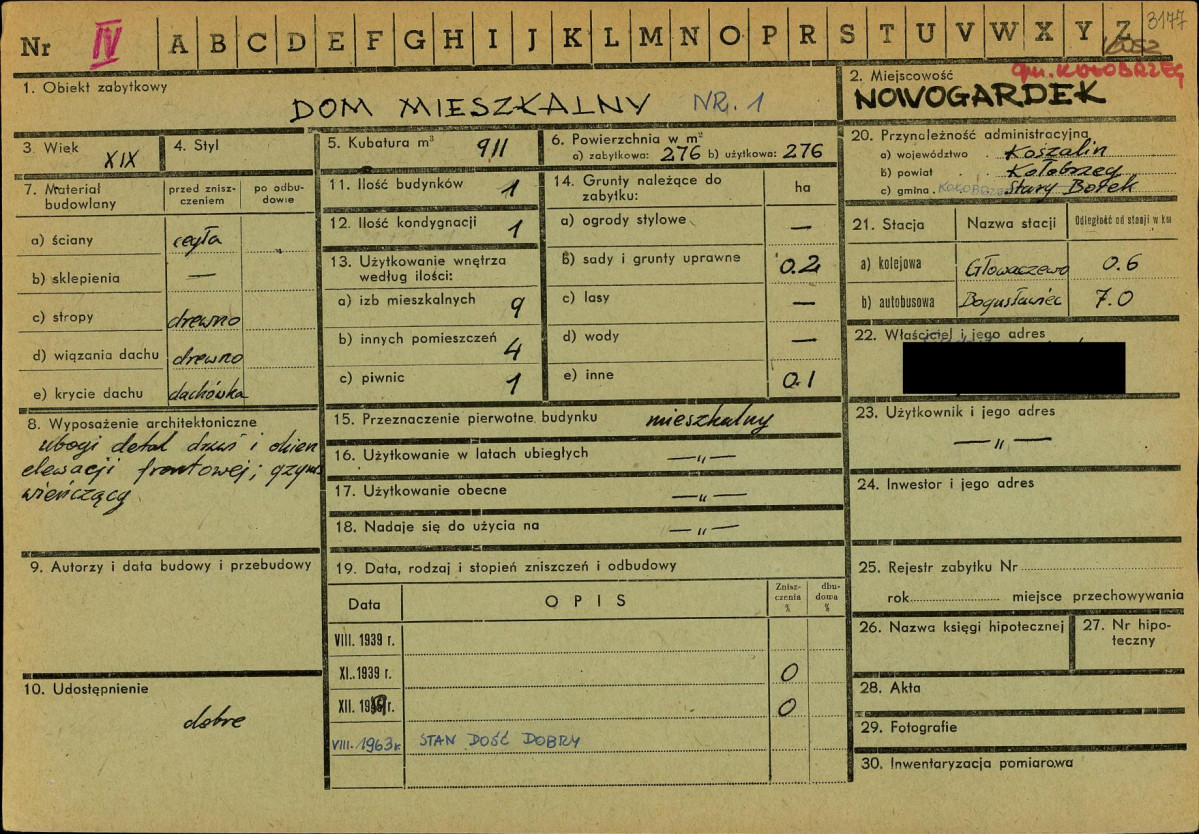 Nr IV A B C D E F G H I J K L M N O P R S T U V W X Y Z 3177
gm. KOŁOBRZEG
1. Obiekt zabytkowy
DOM MIESZKALNY NR. 1
2. Miejscowość
NOWOGARDEK
3. Wiek XIX
4. Styl
5. Kubatura m³ 911
6. Powierzchnia w m²
a) zabytkowa: 276 b) użytkowa: 276
20. Przynależność administracyjna
a) województwo Koszalin
b) powiat Kołobrzeg
c) gmina KOŁOBRZEG Stary Borek
7. Materiał budowlany
przed zniszczeniem
po odbudowie
a) ściany cegła
b) sklepienia —
c) stropy drewno
d) wiązania dachu drewno
e) krycie dachu dachówka
11. Ilość budynków 1
12. Ilość kondygnacji 1
13. Użytkowanie wnętrza
według ilości:
a) izb mieszkalnych 9
b) innych pomieszczeń 4
c) piwnic 1
14. Grunty należące do
zabytku:
ha
a) ogrody stylowe —
b) sady i grunty uprawne 0.2
c) lasy —
d) wody —
e) inne 0.1
21. Stacja
Nazwa stacji
Odległość od stacji w km
a) kolejowa Głowaczewo 0.6
b) autobusowa Bogusławiec 7.0
22. Właściciel i jego adres
8. Wyposażenie architektoniczne
ubogi detal drzwi i okien
elewacji frontowej; gzyms
wieńczący
15. Przeznaczenie pierwotne budynku mieszkalny
16. Użytkowanie w latach ubiegłych — " —
17. Użytkowanie obecne — " —
18. Nadaje się do użycia na — " —
23. Użytkownik i jego adres
— " —
24. Inwestor i jego adres
9. Autorzy i data budowy i przebudowy
19. Data, rodzaj i stopień zniszczeń i odbudowy
Data
OPIS
Zniszczenia %
dbudowa %
VIII. 1939 r.
XI. 1939 r. 0
XII. 19 r. 0
VIII. 1963 r. STAN DOŚĆ DOBRY
25. Rejestr zabytku Nr
rok miejsce przechowywania
26. Nazwa księgi hipotecznej
27. Nr hipoteczny
10. Udostępnienie
dobre
28. Akta
29. Fotografie
30. Inwentaryzacja pomiarowa